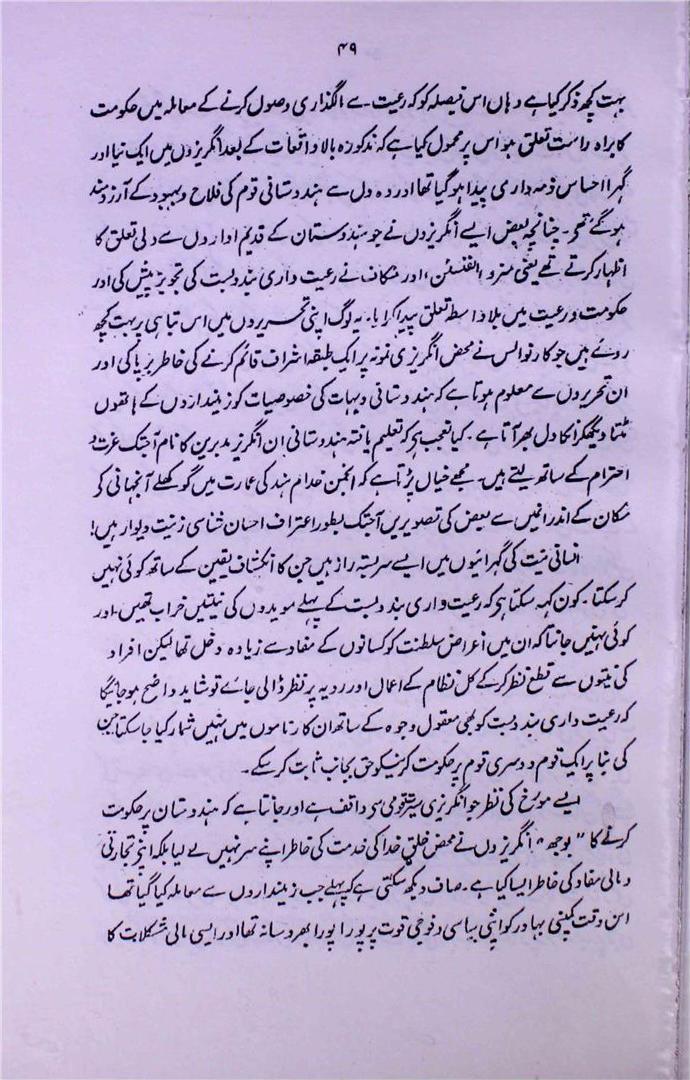 ۴۹
بہت کچھ ذکر کیا ہے وہاں اس فیصلہ کو کہ رعیت سے الگذاری وصول کرنے کے معاملہ میں حکومت
کا براہ راست تعلق ہو اس پر محمول کیا ہے کہ مذکورہ بالا واقعات کے بعد انگریزوں میں ایک نیا اور
گہرا احساس ذمہ داری پیدا ہو گیا تھا اور وہ دل سے ہندوستانی قوم کی فلاح و بہبود کے آرزومند
ہو گئے تھے۔ چنانچہ بعض ایسے انگریزوں نے جو ہندوستان کے قدیم اداروں سے دلی تعلق کا
اظہار کرتے تھے یعنی منرو، الفنسٹن، اور مٹکاف نے رعیت داری بندوبست کی تجویز پیش کی اور
حکومت و رعیت میں بلا واسطہ تعلق پیدا کرایا۔ یہ لوگ اپنی تحریروں میں اس تباہی پر بہت کچھ
روئے ہیں جو کارنوالس نے محض انگریزی نمونہ پر ایک طبقہ اشراف قائم کرنے کی خاطر برپا کی اور
ان تحریروں سے معلوم ہوتا ہے کہ ہندوستانی دیہات کی خصوصیات کو زمینداروں کے ہاتھوں
مٹتا دیکھکر انکا دل بھر آتا ہے۔ کیا تعجب ہے کہ تعلیم یافتہ ہندوستانی ان انگریز مدبرین کا نام آجتک عزت و
احترام کے ساتھ لیتے ہیں۔ مجھے خیال پڑتا ہے کہ انجمن خدام ہند کی عمارت میں گوکھلے آنجہانی کے
مکان کے اندر انمیں سے بعض کی تصویریں آجتک بطور اعتراف احسان شناسی زینت دیوار ہیں!
انسانی نیت کی گہرائیوں میں ایسے سربستہ راز ہیں جن کا انکشاف یقین کے ساتھ کوئی نہیں
کر سکتا۔ کون کہہ سکتا ہے کہ رعیت واری بندوبست کے پہلے مویدوں کی نیتیں خراب تھیں۔ اور
کوئی نہیں جانتا کہ ان میں اغراض سلطنت کو کسانوں کے مفاد سے زیادہ دخل تھا لیکن افراد
کی نیتوں سے قطع نظر کر کے کل نظام کے اعمال اور رویہ پر نظر ڈالی جائے تو شاید واضح ہو جائیگا
کہ رعیت داری بندوبست کو بھی معقول وجوہ کے ساتھ ان کارناموں میں نہیں شمار کیا جا سکتا جن
کی بنا پر ایک قوم دوسری قوم پر حکومت کرنیکو حق بجانب ثابت کر سکے۔
ایسے مورخ کی نظر جو انگریزی سیرت قومی سے واقف ہے اور جانتا ہے کہ ہندوستان پر حکومت
کرنے کا "بوجھ" انگریزوں نے محض خلق خدا کی خدمت کی خاطر اپنے سر نہیں لے لیا بلکہ اپنے تجارتی
و مالی مفاد کی خاطر ایسا کیا ہے۔ صاف دیکھ سکتی ہے کہ پہلے جب زمینداروں سے معاملہ کیا گیا تھا
اس وقت کمپنی بہادر کو اپنی سیاسی و فوجی قوت پر پورا پورا بھروسا نہ تھا اور ایسی مالی مشکلات کا